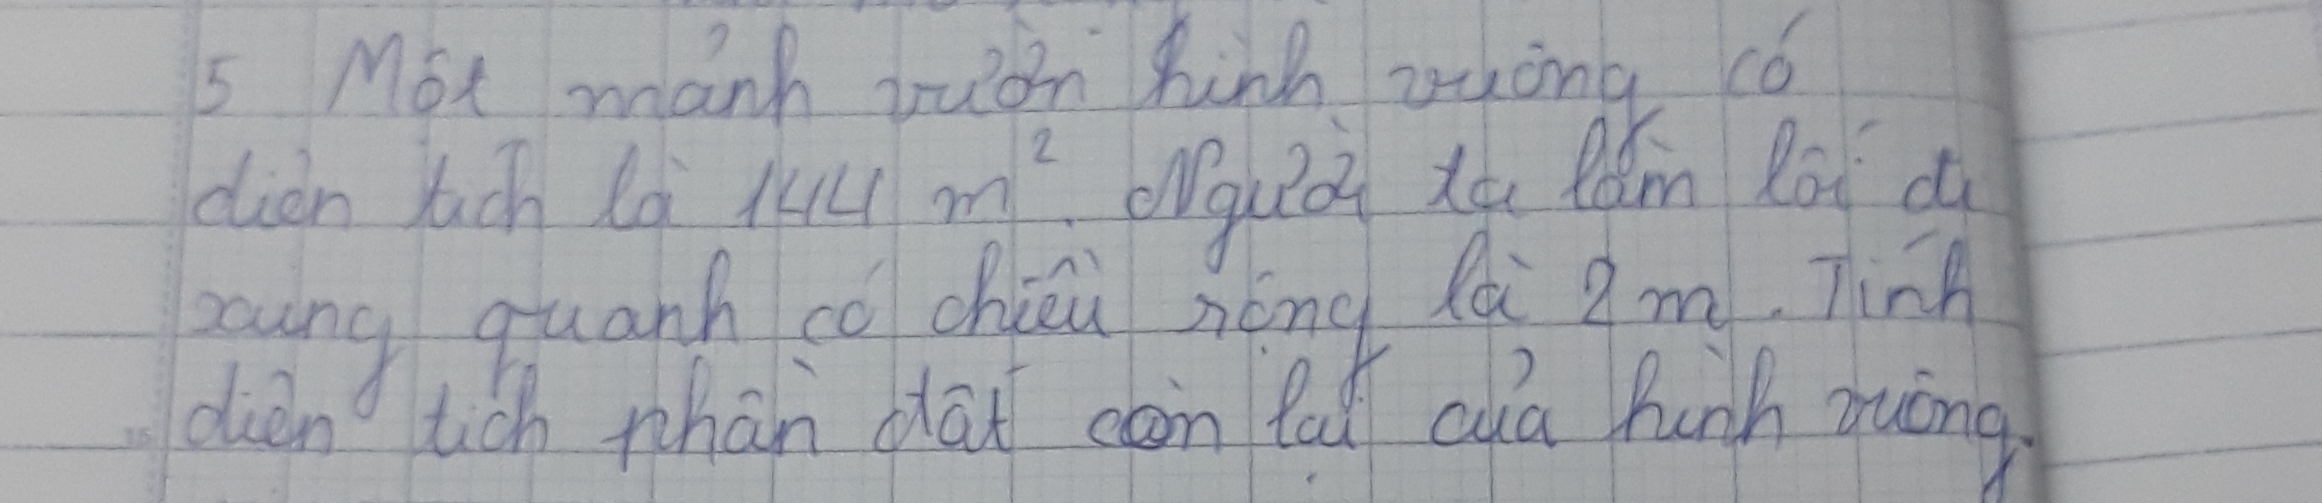 5 Một mảnh vườn hình vuông có
diện tích là 144 m². Người ta làm lối đi
xung quanh có chiều rộng là 2 m. Tính
diện tích phần đất còn lại của hình vuông.